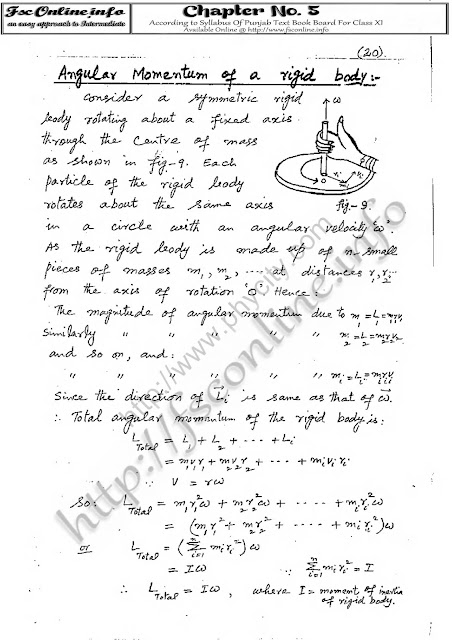 Fsc Online.info
an easy approach to Intermediate
Chapter No. 5
According to Syllabus Of Punjab Text Book Board For Class XI
Available Online @ http://www.fsconline.info
(20).
Angular Momentum of a rigid body:-
Consider a symmetric rigid
body rotating about a fixed axis
through the Centre of mass
as shown in fig-9. Each
particle of the rigid body
rotates about the same axis
ω
O
fig-9.
in a circle with an angular velocity 'ω'.
As the rigid body is made up of n-small
pieces of masses m₁, m₂, ---- at distances r₁, r₂...
from the axis of rotation 'O'. Hence:
The magnitude of angular momentum due to m₁ = L₁ = m₁r₁v₁
similarly " " " " " " m₂ = L₂ = m₂r₂v₂
and so on, and:
" " " " " " " mᵢ = Lᵢ = mᵢrᵢvᵢ
Since the direction of L⃗ᵢ is same as that of ω⃗.
∴ Total angular momentum of the rigid body is:
L_Total = L₁ + L₂ + --- + Lᵢ
= m₁v₁r₁ + m₂v₂r₂ + --- + mᵢvᵢrᵢ
∵ V = rω
So: L_Total = m₁r₁²ω + m₂r₂²ω + ----- + mᵢrᵢ²ω
= (m₁r₁² + m₂r₂² + ---- + mᵢrᵢ²)ω
or L_Total = (Σⁿᵢ₌₁ mᵢrᵢ²) ω
= Iω ∵ Σⁿᵢ₌₁ mᵢrᵢ² = I
∴ L_Total = Iω , where I = moment of inertia
of rigid body.
http://www.phycity.com
http://fsconline.info